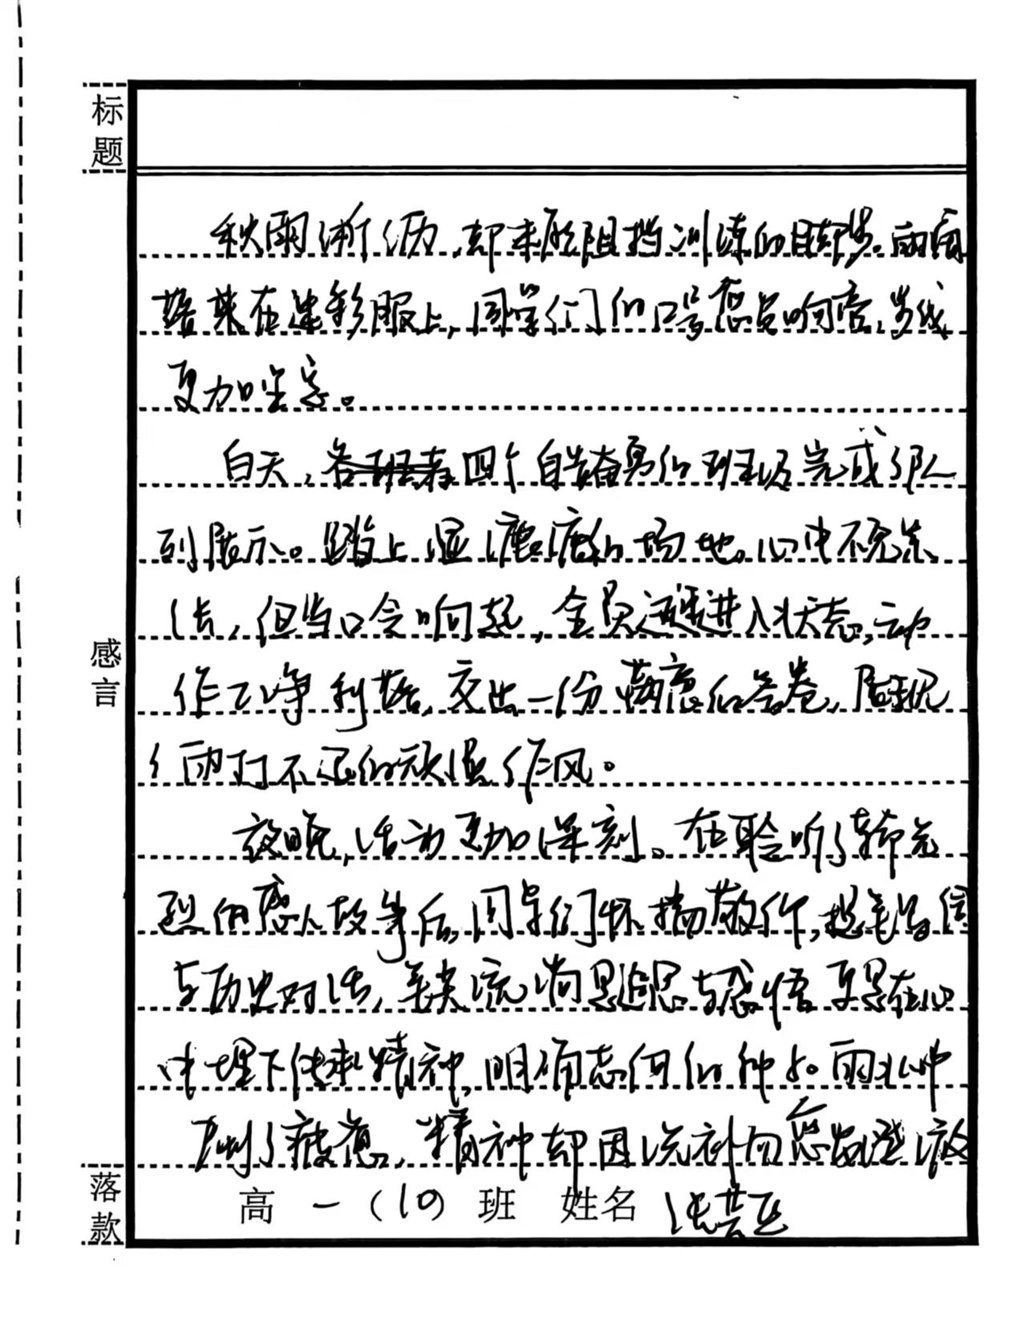 标题
秋雨淅沥,却未能阻挡训练的脚步。雨滴
落在迷彩服上,同学们的口号愈发响亮,步伐
更加坚定。
白天,四个自告奋勇的班级完成了队
列展示。踏上湿漉漉的场地,心中不免
但当口令响起,全员迅速进入状态,动
作干净利落,交出一份满意的答卷,展现
了雨打不退的顽强作风。
夜晚,活动更加深刻。在聆听了革命先
烈的感人故事后,同学们怀揣敬仰,提笔写信
与历史对话,笔尖流淌思念与感悟,更是在心
中埋下传承精神,明确志向的种子。雨水冲
刷了疲惫,精神却因洗礼而愈发澄澈
感言
落款
高一(10)班 姓名